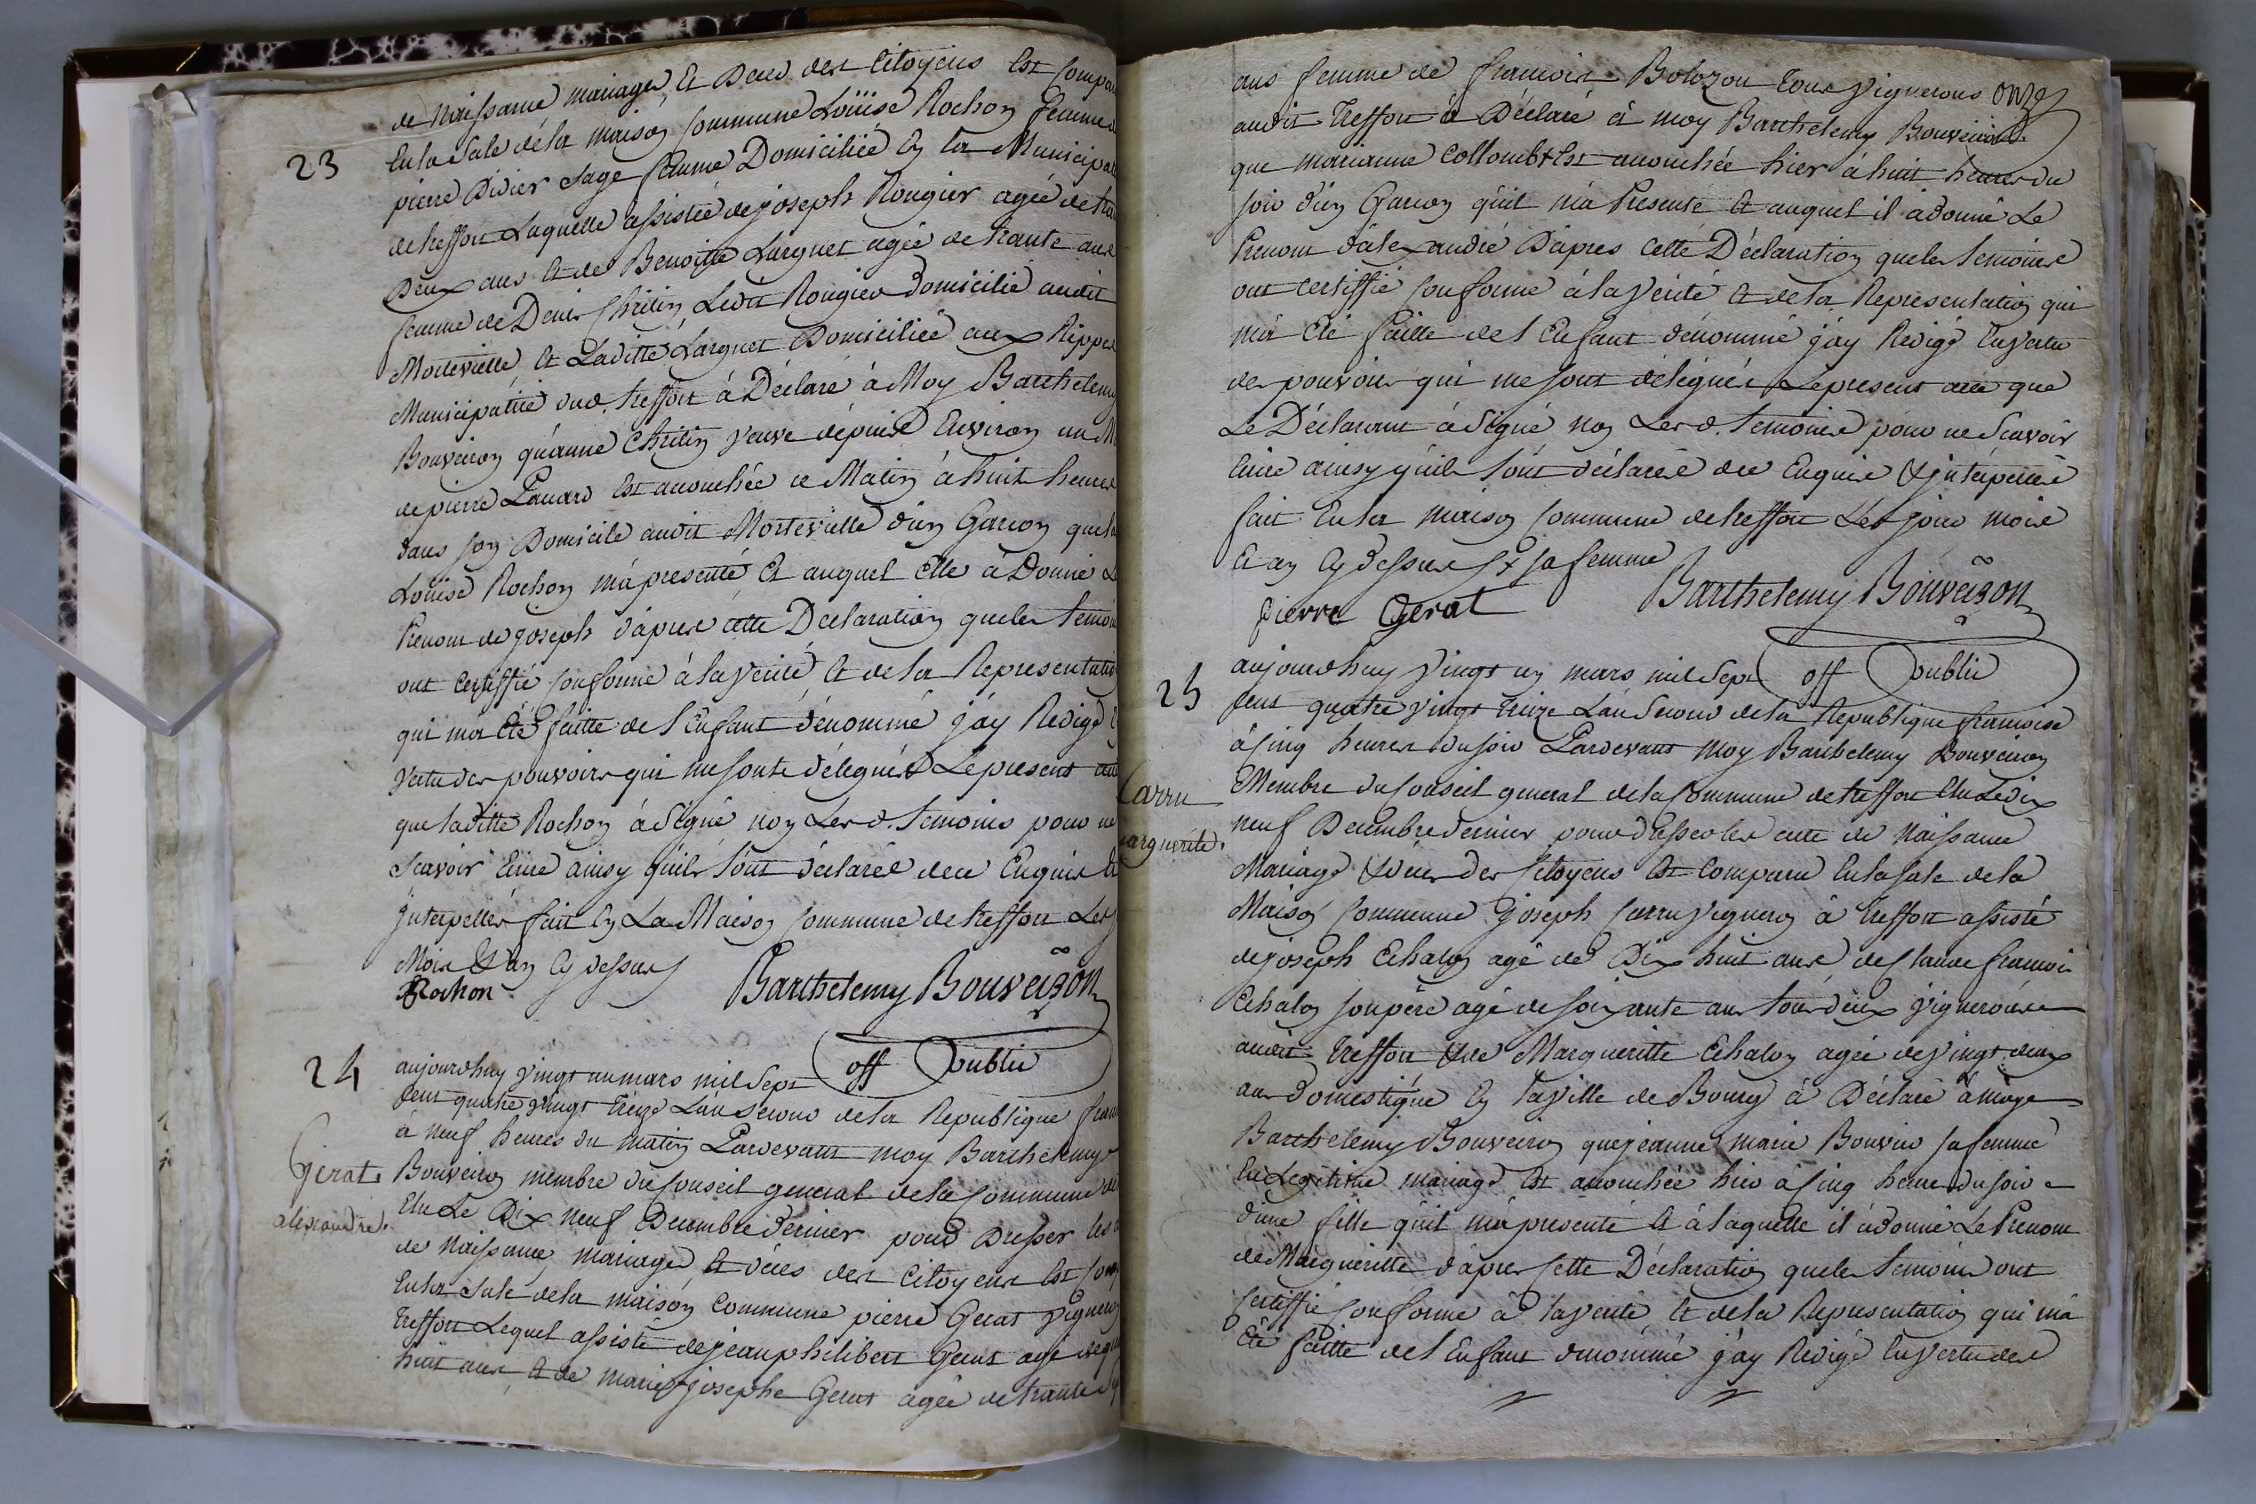 de Naissance mariages Et Deces des Citoyens Est Compa
23
En la Sale de la maison Commune Loüise Rochon femme
pierre Didier Sage femme Domiciliée En la Municipal
de treffort Laquelle assistée de joseph Rougier agée de tra
Deux ans Et de Benoitte Larguet agée de trante ans
femme de Denis Chrétin Ledit Rougier domicilié audit
Montevielle Et Laditte Larguet Domiciliée aux Rippes
Municipalité dud. treffort à Déclaré à Moy Barthelemy
Bouveiron qu'anne Chrétin Veuve dépuis Environ un M
de pierre Pauard Est accouchée ce Matin à huit heures
dans son Domicile audit Montevielle d'un Garcon que la
Loüise Rochon m'a presenté Et auquel Elle à Donné Le
Prenom de joseph d'après cette Déclaration que les temoin
ont certiffié Conforme à la Verité Et de la Representatio
qui m'a Eté faitte de l'Enfant dénommé j'ay Rédigé E
Vertu des pouvoirs qui me sont délégués Le present acte
que laditte Rochon à Signé non Les d. temoins pour ne
Scavoir Ecrire ainsy qu'ils l'ont déclarés de ce Enquis Et
interpellés fait En La Maison Commune de treffort Les j
Mois Et an Cy dessus
Rochon
Barthelemy Bouveiron
off public
24
aujourdhuy Vingt un mars mil Sept
Cent quatre Vingt Treize L'an Second de la Republique fran
à neuf heures du matin Pardevant moy Barthelemy
Gerat
Bouveiron membre du Conseil general de la Commune de
alexandre.
Elu Le Dix neuf Decembre dernier pour Dresser les a
de Naissance mariages Et déces des Citoyens Est Comp
En la Sale de la maison Commune pierre Gerat Vigneron
Treffort Lequel assisté de jean philibert Gerat agé de qua
huit ans Et de marie josephe Gerat agée de trante
ans femme de francois Bolozon tous Vignerons onze
audit Treffort à Déclaré à moy Barthelemy Bouveiron
que marianne Collomb + Est accouchée hier à huit heures du
soir d'un Garcon qu'il m'a Presenté Et auquel il à donné Le
Prenom d'alexandre D'apres cette Déclaration que les temoins
ont certiffié Conforme à la Verité Et de la Representation qui
m'a Eté faitte de l'Enfant dénommé j'ay Rédigé En Vertu
des pouvoirs qui me sont délégués Le present acte que
Le Déclarant à Signé non Les d. temoins pour ne Scavoir
Ecrire ainsy qu'ils l'ont déclarés de ce Enquis Et interpellés
fait En la maison Commune de treffort Les jour mois
Et an Cy dessus + sa femme
pierre Gerat
Barthelemy Bouveiron
off public
25
aujourdhuy Vingt un mars mil Sept
Cent quatre Vingt treize L'an Second de la Republique francoise
à Cinq heures du soir Pardevant moy Barthelemy Bouveiron
Carru
Membre du Conseil general de la Commune de treffort Elu Le dix
marguerite.
neuf Decembre dernier pour dresser les acte de Naissance
Mariage Et déces des Citoyens Est Comparu En la sale de la
Maison Commune joseph Carru Vigneron à treffort assisté
de joseph Echalon agé de Dix huit ans de Claude francois
Echalon son père agé de soixante ans tous deux Vignerons
audit treffort Et de Margueritte Echalon agée de Vingt deux
ans domestique En la Ville de Bourg à Déclaré à moy
Barthelemy Bouveiron que jeanne marie Bouvier sa femme
En Legitime mariage Est accouchée hier à Cinq heure du soir
d'une fille qu'il m'a presenté Et à laquelle il à donné Le Prenom
de Margueritte d'apres Cette Déclaration que les temoins ont
Certiffié Conforme à la Verité Et de la Representation qui m'a
Eté faitte de l'Enfant denommé j'ay Rédigé En Vertu des